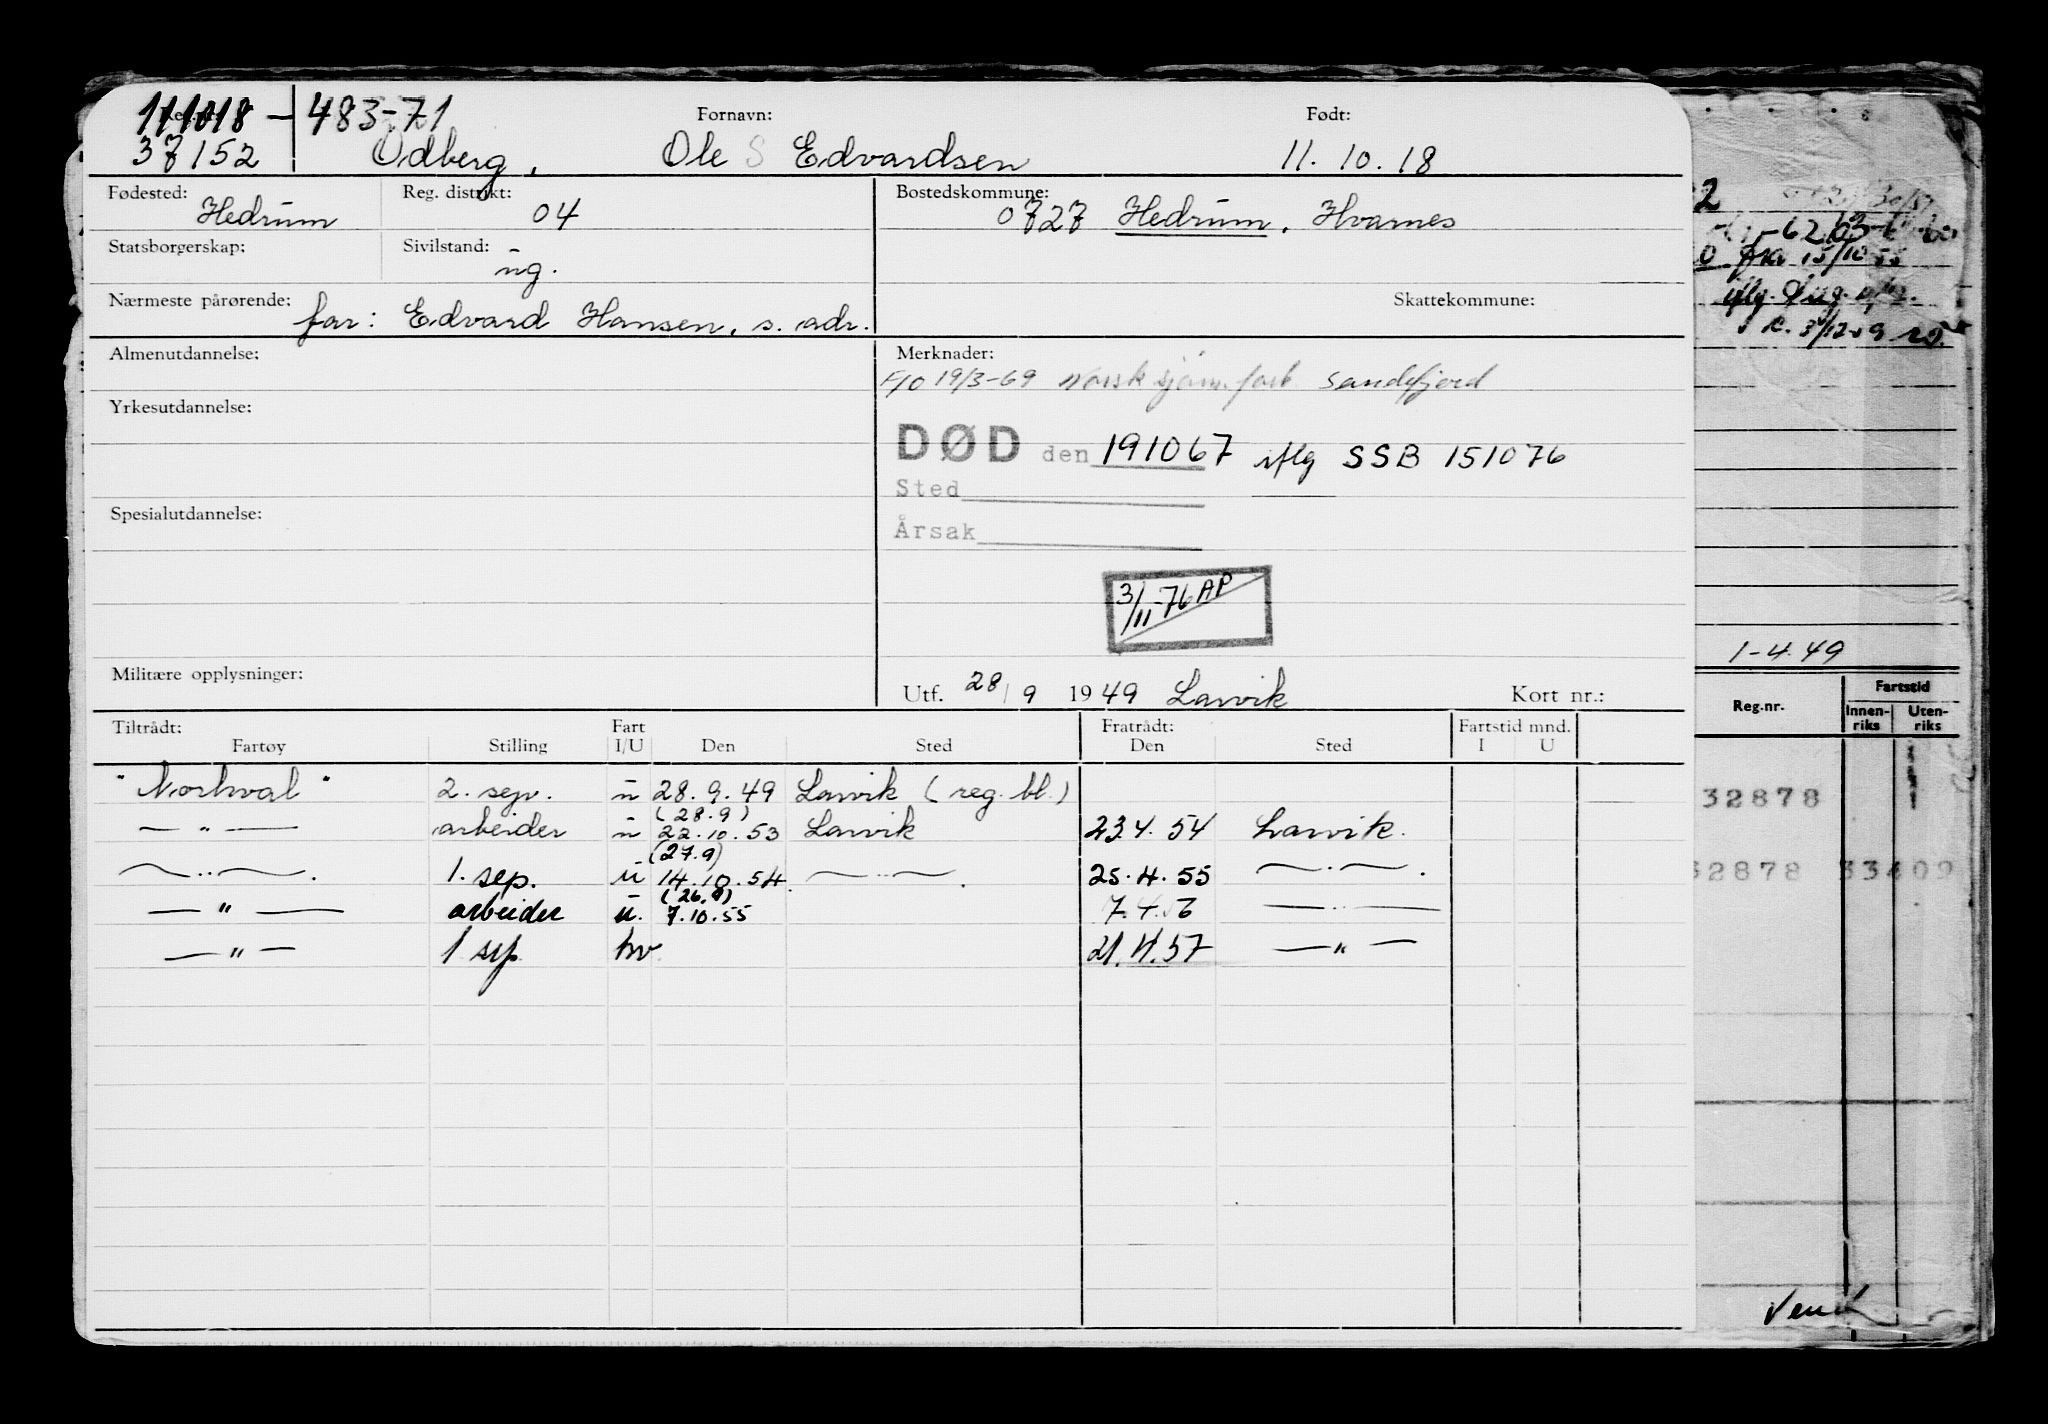 111018 - 483-71 Fornavn: Født:
37152 Odberg, Ole S Edvardsen 11. 10. 18
Fødested: Reg. distrikt: Bostedskommune:
Hedrum 04 0727 Hedrum, Hvarnes
Statsborgerskap: Sivilstand:
ug.
Nærmeste pårørende: Skattekommune:
far: Edvard Hansen, s. adr.
Almenutdannelse: Merknader:
F/O 19/3-69 Norsk sjøm. forb Sandefjord
Yrkesutdannelse:
DØD den 191067 iflg SSB 151076
Sted
Spesialutdannelse:
Årsak
3/11-76 AP
Militære opplysninger:
Utf. 28/9 1949 Larvik Kort nr.:
Tiltrådt: Fart Fratrådt: Fartstid mnd.
Fartøy Stilling I/U Den Sted Den Sted I U
"Norhval" 2. sep. u 28. 9. 49 Larvik (reg. bl.)
(28.9)
— " — arbeider u 22. 10. 53 Larvik 23.4. 54 Larvik.
(27.9)
— " — . 1. sep. u 14. 10. 54 — " — . 25. 4. 55 — " — .
(26.9)
— " — arbeider u. 7.10.55 7.4.56 — " —
— " — 1 sep hv. 21.4.57 — " —
fra 15/10 55
1-4.49
Reg.nr. Fartstid
Innen-riks Uten-riks
32878
32878 33409
Vend